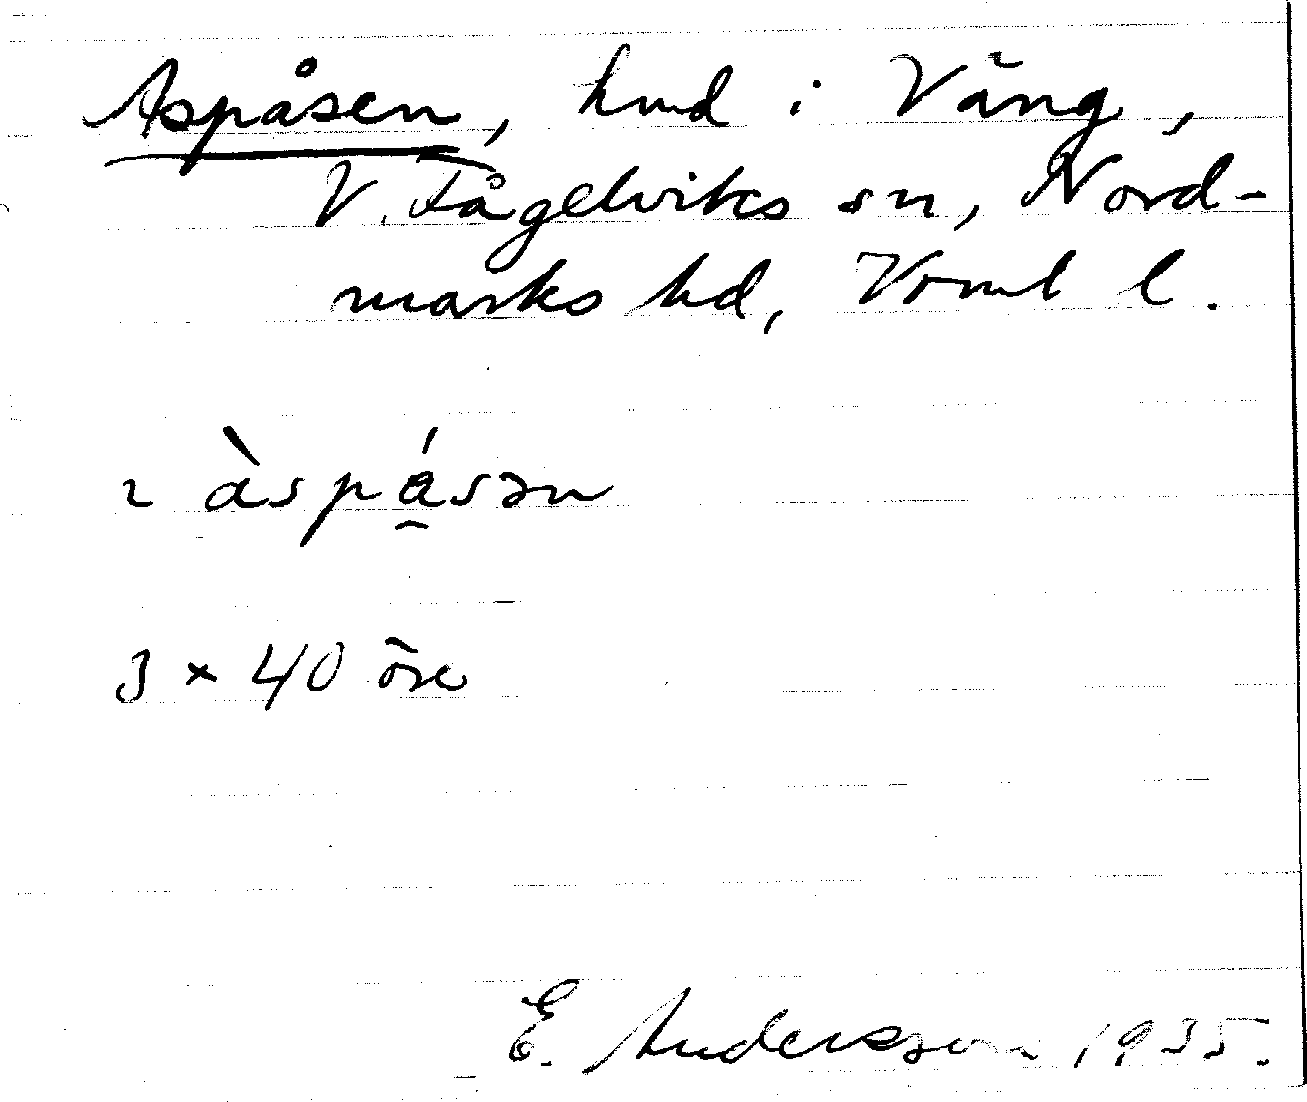 Aspåsen, hmd i Väng,
V. Fågelviks sn, Nord-
marks hd, Vrml l.
2 àspásən
3 × 40 öre
E. Andersson 1935.